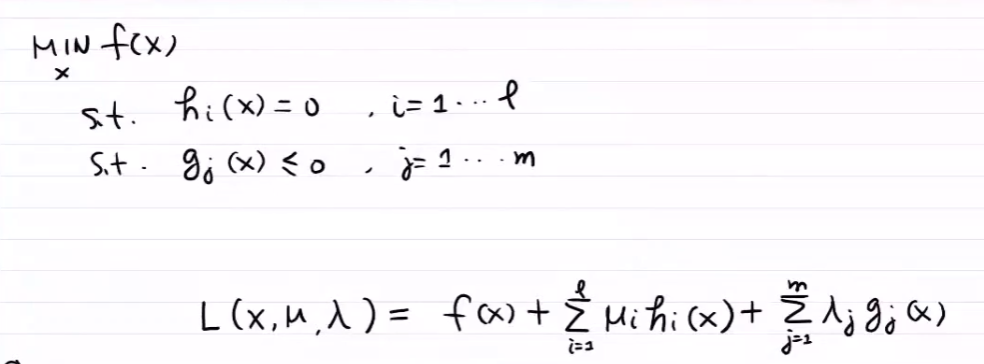 MIN f(x)
x
s.t. hi(x) = 0 , i = 1 ... l
s.t. gj(x) ≤ 0 , j = 1 ... m
L(x, μ, λ) = f(x) + ∑_{i=1}^{l} μi hi(x) + ∑_{j=1}^{m} λj gj(x)